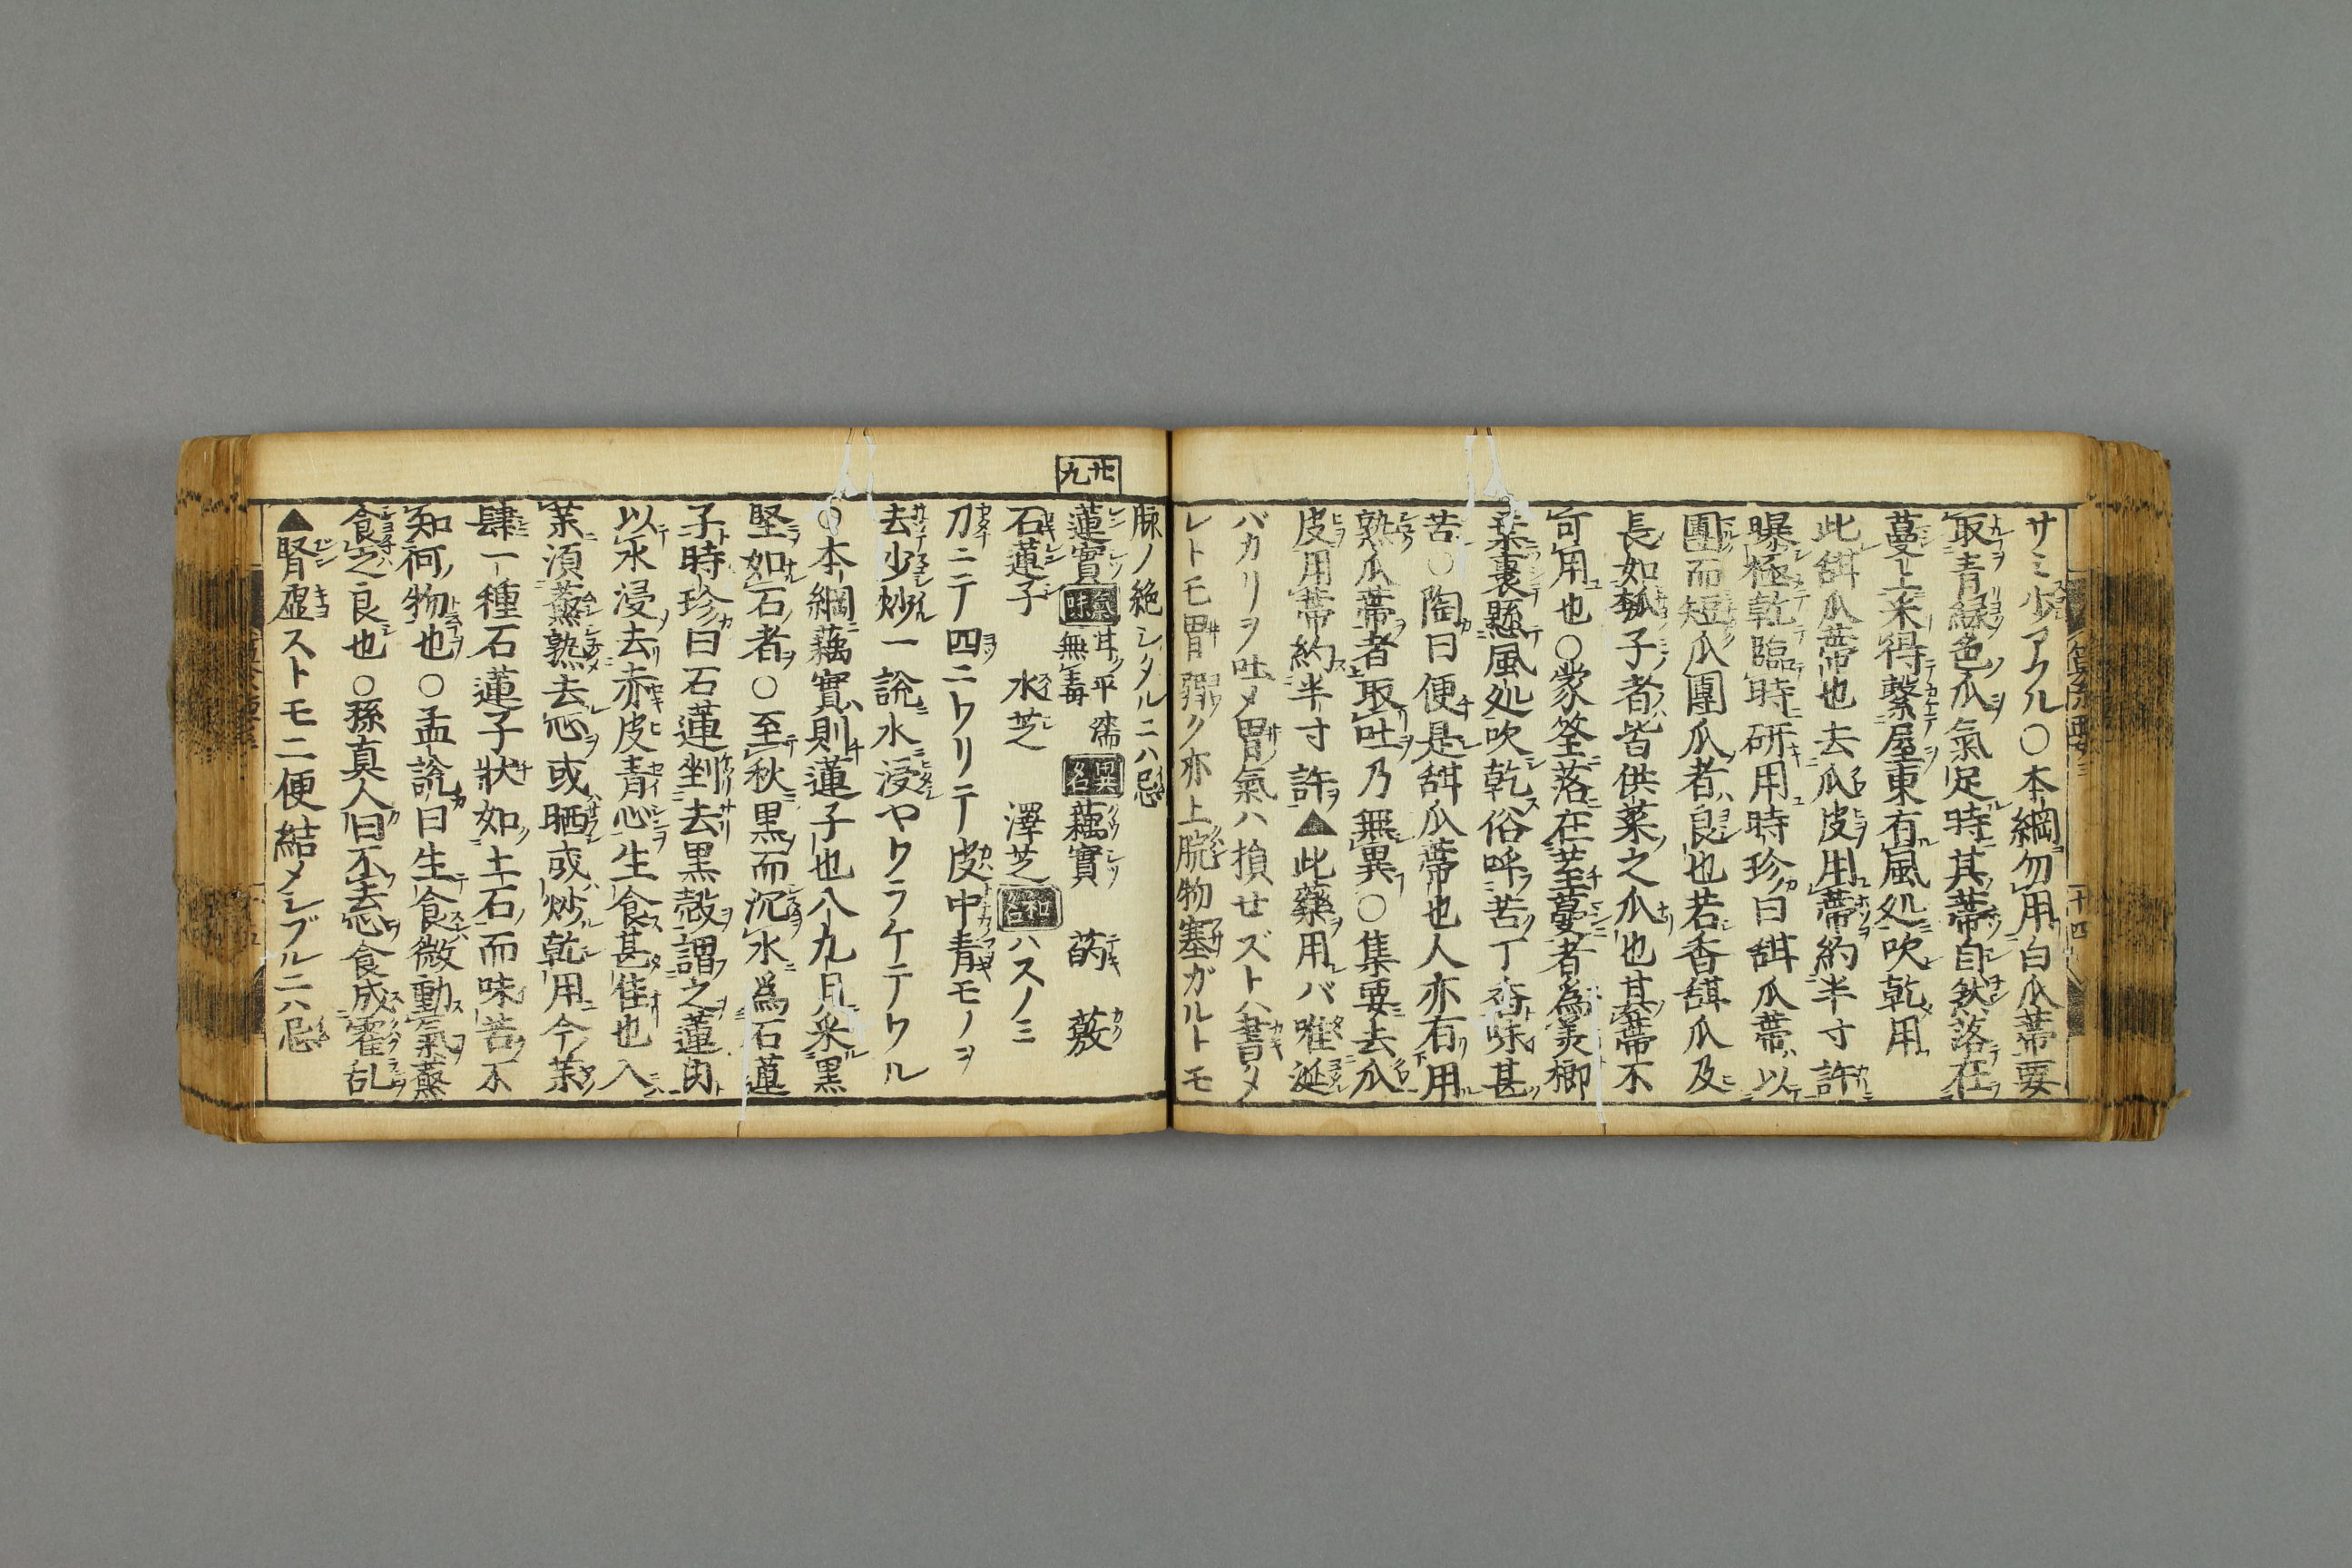 サミ少アクル〇本綱勿用白瓜蒂要
取青緑色瓜氣足時其蒂自然落在
蔓上采得繋屋東有風処吹乾用
此甜瓜蒂也去瓜皮用蒂約半寸許
曝極乾臨時研用時珍曰甜瓜蒂以
團而短瓜團瓜者良也若香甜瓜及
長如瓠子者皆供菜之瓜也其蒂不
可用也〇蒙筌落在茎蔓者為美榔
葉裏懸風処吹乾俗呼苦丁香味甚
苦〇陶曰便是甜瓜蒂也人亦有用
熟瓜蒂者取吐乃無異〇集要去瓜
皮用蒂約半寸許▲此藥用レバ唯涎
バカリヲ吐メ胃氣ハ損セズトハ書タメ
レトモ胃弱ク亦上脘物塞ガルトモ
脉ノ絶シタルニハ忌
廿九
蓮實 氣味 甘平濇無毒 異名 藕實 菂 薂
石蓮子 水芝 澤芝 和名 ハスノミ
刀ニテ四ニワリテ皮中青モノヲ
去少炒一説水浸ヤワラケテワル
〇本綱藕實則蓮子也八九月采黒
堅如石者〇至秋黒而沉水爲石蓮
子時珍曰石蓮剉去黒殻謂之蓮肉
以水浸去赤皮青心生食甚佳也入
藥須蒸熟去心或晒或炒乾用今藥
肆一種石蓮子狀如土石而味苦不
知何物也〇孟詵曰生食微動氣蒸
食之良也〇孫真人曰不去心食成霍乱
▲腎虚ストモ二便結メシブルニハ忌
十四